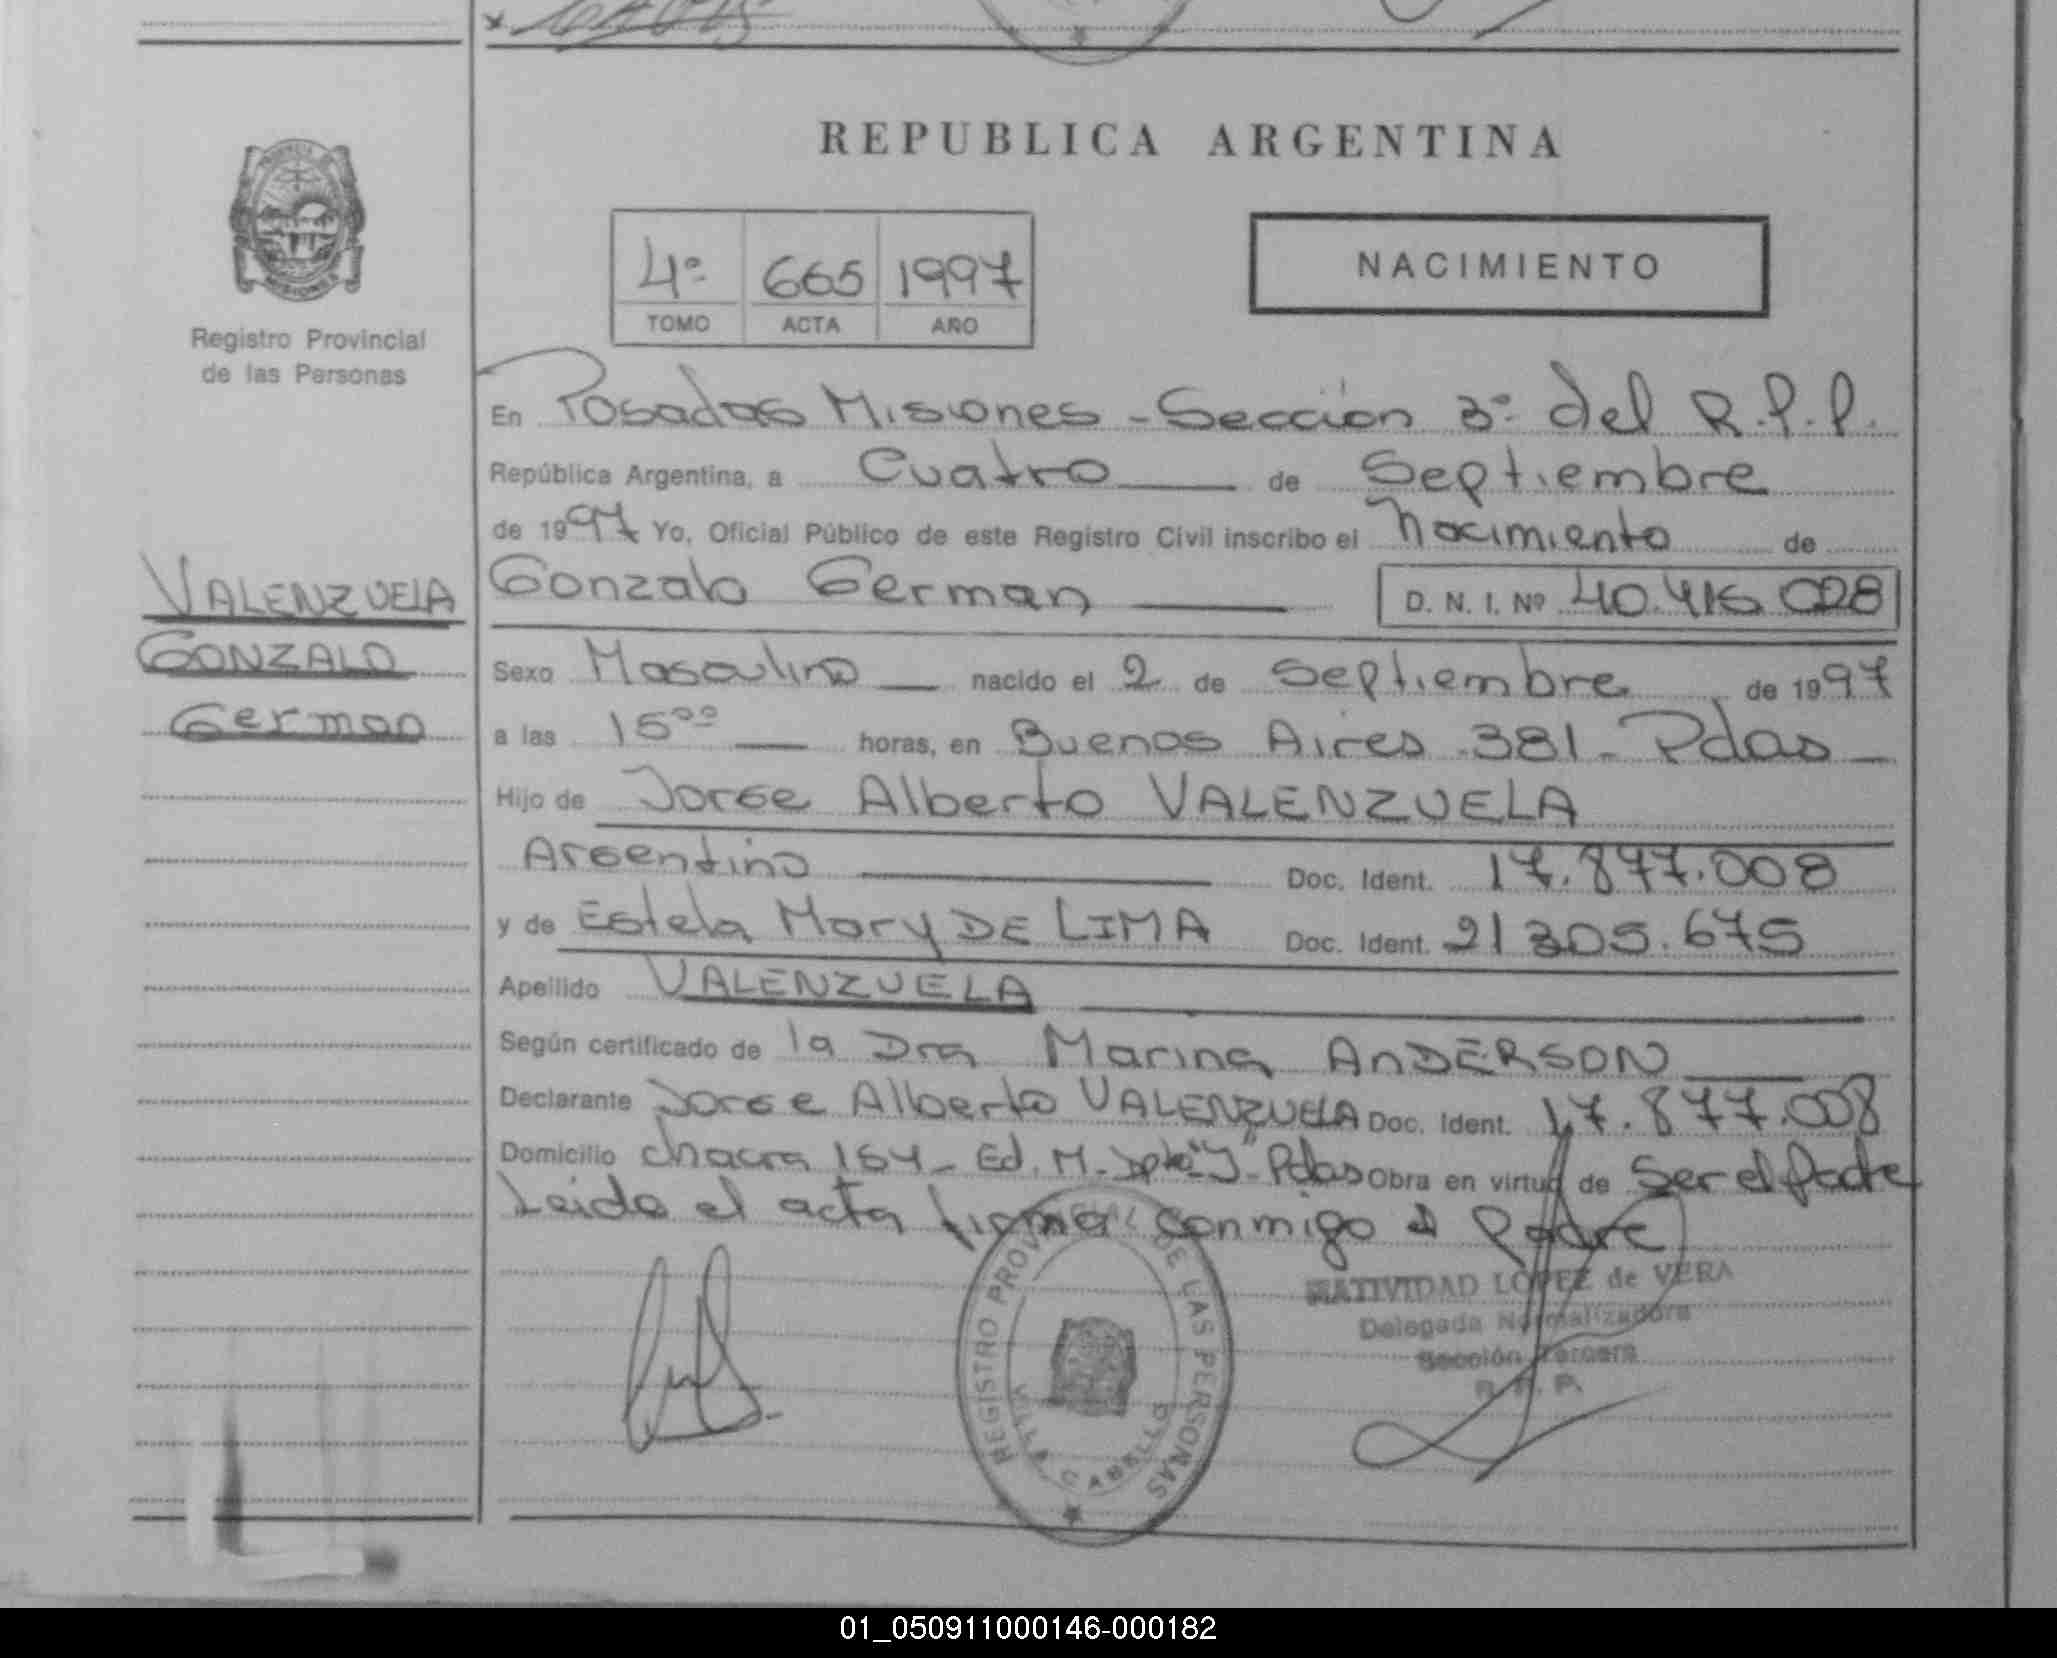 REPUBLICA ARGENTINA
PROVINCIA DE MISIONES
Registro Provincial
de las Personas
4º 665 1997
TOMO ACTA AÑO
NACIMIENTO
En Posadas Misiones - Sección 3º del R.P.P.
República Argentina, a Cuatro de Septiembre
de 1997 Yo, Oficial Público de este Registro Civil inscribo el Nacimiento de
VALENZUELA
GONZALO
German
Gonzalo German D. N. I. Nº 40.416.028
Sexo Masculino nacido el 2 de Septiembre de 1997
a las 15ºº horas, en Buenos Aires 381 - Pdas
Hijo de Jorge Alberto VALENZUELA
Argentino Doc. Ident. 17.877.008
y de Estela Mary DE LIMA Doc. Ident. 21 305.675
Apellido VALENZUELA
Según certificado de la Dra Marina AnDERSON
Declarante Jorge Alberto VALENZUELA Doc. Ident. 17.877.008
Domicilio chacra 154 - Ed. M - Dpto "J" - Pdas Obra en virtud de Ser el padre
Leida el acta firma conmigo el Padre
REGISTRO PROVINCIAL DE LAS PERSONAS
VILLA CABELLO
NATIVIDAD LOPEZ de VERA
Delegada Normalizadora
Sección Tercera
R. P. P.
01_050911000146-000182